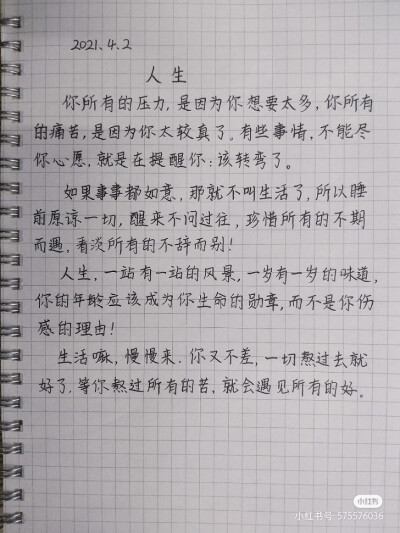 2021.4.2
人生
你所有的压力,是因为你想要太多,你所有
的痛苦,是因为你太较真了。有些事情,不能尽
你心愿,就是在提醒你:该转弯了。
如果事事都如意,那就不叫生活了,所以睡
前原谅一切,醒来不问过往,珍惜所有的不期
而遇,看淡所有的不辞而别!
人生,一站有一站的风景,一岁有一岁的味道,
你的年龄应该成为你生命的勋章,而不是你伤
感的理由!
生活嘛,慢慢来,你又不差,一切熬过去就
好了,等你熬过所有的苦,就会遇见所有的好。
小红书
小红书号:575576036